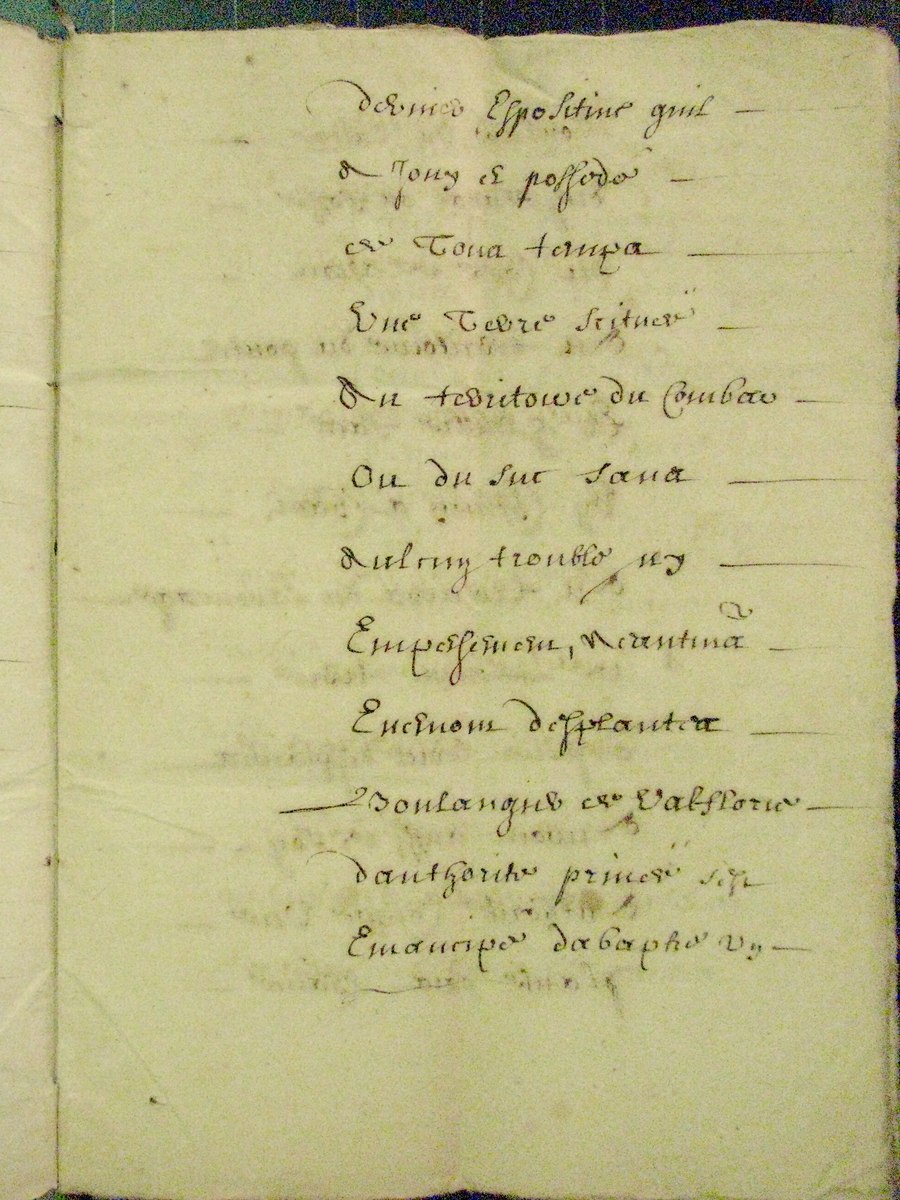 dernier Expositive quil
A Jouy et possedé
de Tout temps
Une Terre scituée
Au territoire du Combau
Ou du suc sans
Aulcung trouble ny
Empechement, Neantmoings
Enemond desplantes
Boulangier de Valflorie
dauthorité privée sest
Emancipé dabaptre ung